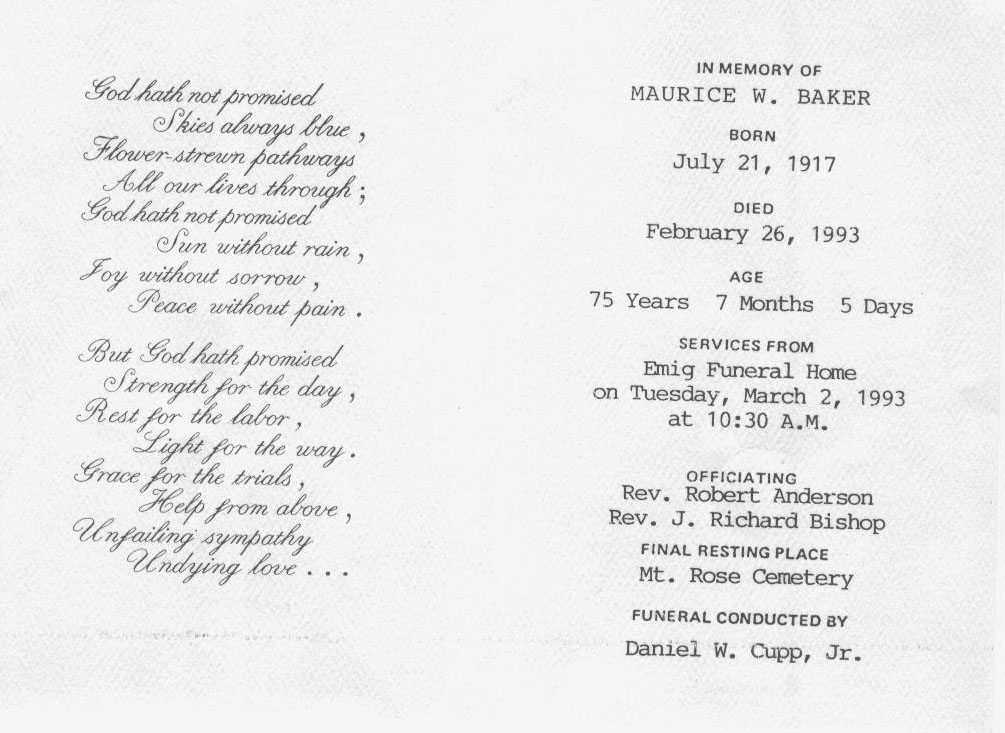 God hath not promised
Skies always blue,
Flower-strewn pathways
All our lives through;
God hath not promised
Sun without rain,
Joy without sorrow,
Peace without pain.
But God hath promised
Strength for the day,
Rest for the labor,
Light for the way.
Grace for the trials,
Help from above,
Unfailing sympathy
Undying love . . .
IN MEMORY OF
MAURICE W. BAKER
BORN
July 21, 1917
DIED
February 26, 1993
AGE
75 Years 7 Months 5 Days
SERVICES FROM
Emig Funeral Home
on Tuesday, March 2, 1993
at 10:30 A.M.
OFFICIATING
Rev. Robert Anderson
Rev. J. Richard Bishop
FINAL RESTING PLACE
Mt. Rose Cemetery
FUNERAL CONDUCTED BY
Daniel W. Cupp, Jr.